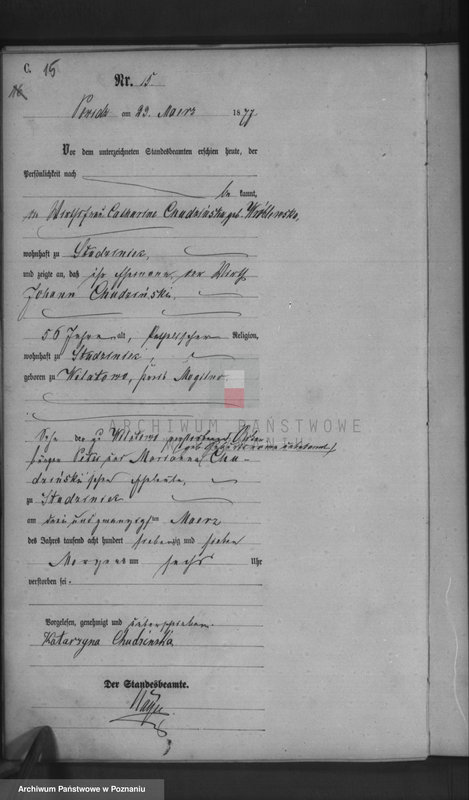 C. 15
Nr. 15
am 23. Maerz 1877
Vor dem unterzeichneten Standesbeamten erschien heute, der
Persönlichkeit nach
be kannt,
die Wirthsfrau Catharine Chudzinska geb. Wróblewska,
wohnhaft zu
und zeigte an, daß ihr Ehemann, der Wirth
Johann Chudziński,
56 Jahre alt, katholischer Religion,
wohnhaft zu
geboren zu Wilatowo, Kreis Mogilno,
ARCHIWUM PAŃSTWOWE
W POZNANIU
Sohn der zu Wilatowo verstorbenen
und Marianna Chu-
dziński'schen Eheleute,
zu
am drei und zwanzigsten Maerz
des Jahres tausend acht hundert siebenzig und sieben
Morgens um sechs Uhr
verstorben sei.
Vorgelesen, genehmigt und unterschrieben.
Katarzyna Chudzinska
Der Standesbeamte.
Archiwum Państwowe w Poznaniu